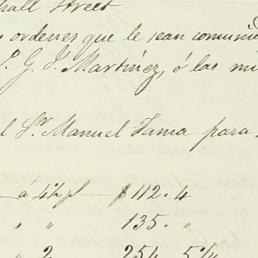 hall Street
ordenes que le sean comunic
G. J. Martinez, ó las mi
l Sr Manuel Fama para
á 4½ pl $112.4
" " 135. "
" 2 254 5¼